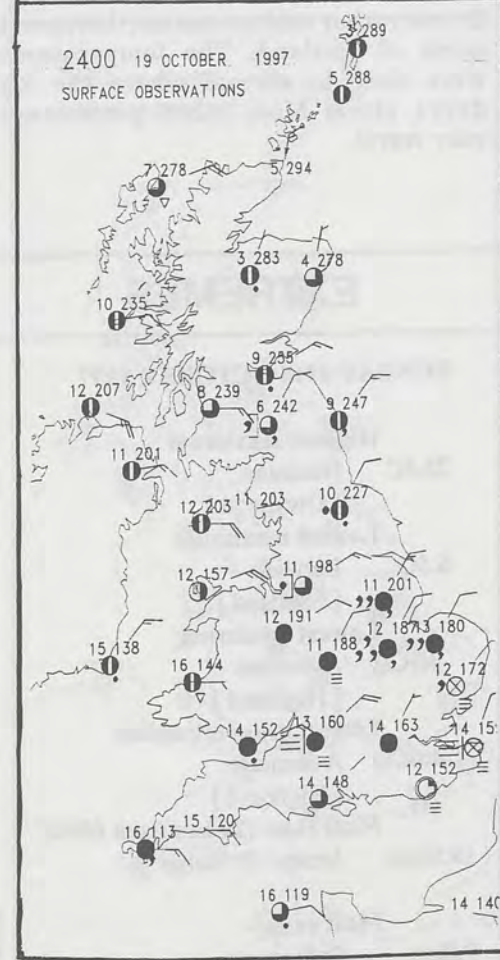 289
2400 19 OCTOBER. 1997.
5 288
SURFACE OBSERVATIONS
7 278
5 294
3 283
4 278
10 235
9 255
12 207
8 239
6 242
9 247
11 201
12 203
11 203
10 227
12 157
11 198
11 201
12 191
12 187
13 180
15 138
16 144
11 188
12 172
14 152
13 160
14 163
14 15
12 152
14 148
15 120
16 113
16 119
14 140